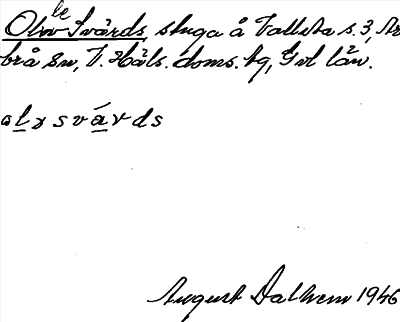 le
Olov-Svärds, stuga å Vallsta s. 3, Ar
brå sn, V. Häls. doms. hg, Gvl län.
o l ɤ s v á r d s
August Dalhem 1946